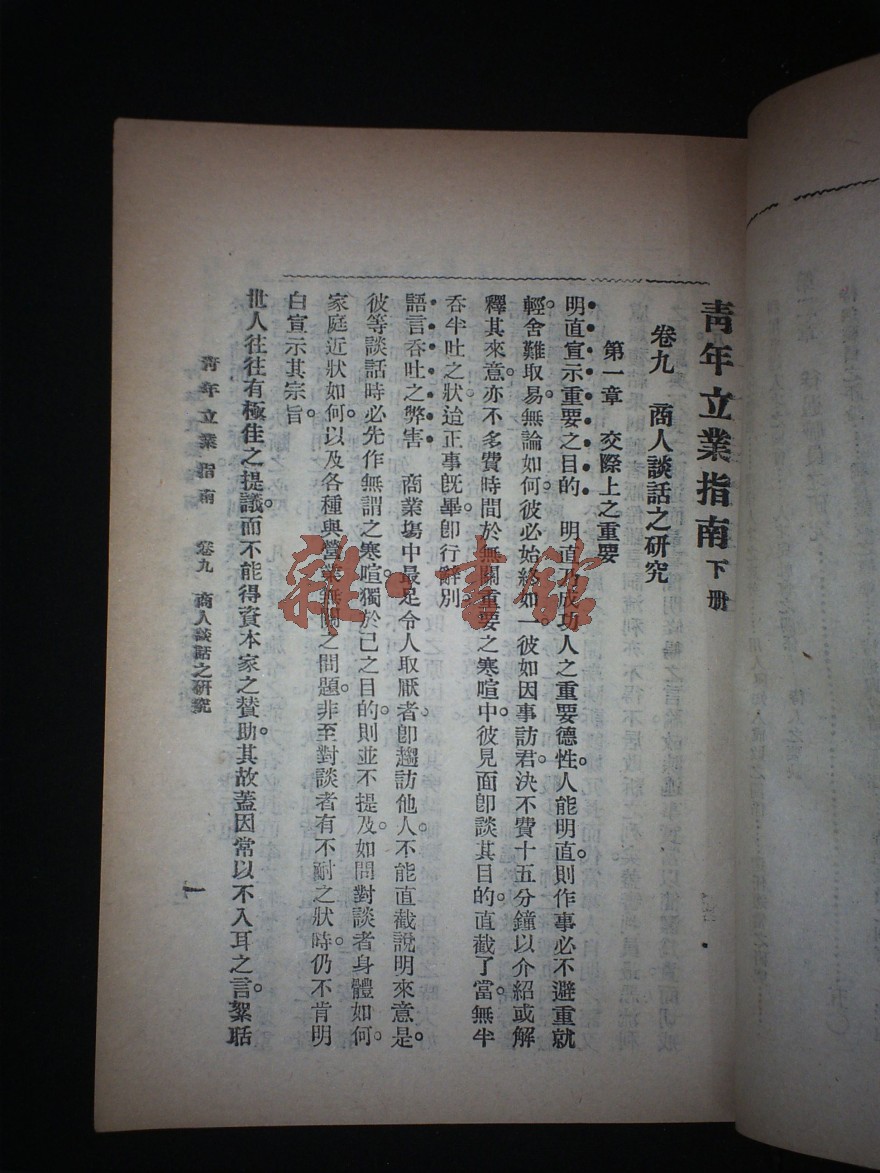 青年立業指南 下册
卷九 商人談話之研究
第一章 交際上之重要
明直宣示重要之目的 明直乃成功人之重要德性。人能明直。則作事必不避重就
輕。舍難取易。無論如何。彼必始終如一。彼如因事訪君。決不費十五分鐘以介紹或解
釋其來意。亦不多費時間於無關重要之寒喧中。彼見面卽談其目的。直截了當。無半
吞半吐之狀。迨正事旣畢。卽行辭別
語言吞吐之弊害 商業塲中最足令人取厭者。卽趨訪他人。不能直截說明來意。是。
彼等談話時。必先作無謂之寒喧。獨於己之目的。則並不提及。如問對談者身體如何。
家庭近狀如何。以及各種與營業無關之問題。非至對談者有不耐之狀時。仍不肯明
白宣示其宗旨。
世人往往有極佳之提議。而不能得資本家之贊助。其故蓋因常以不入耳之言。絮聒
青年立業指南 卷九 商人談話之研究
一
雜·書館